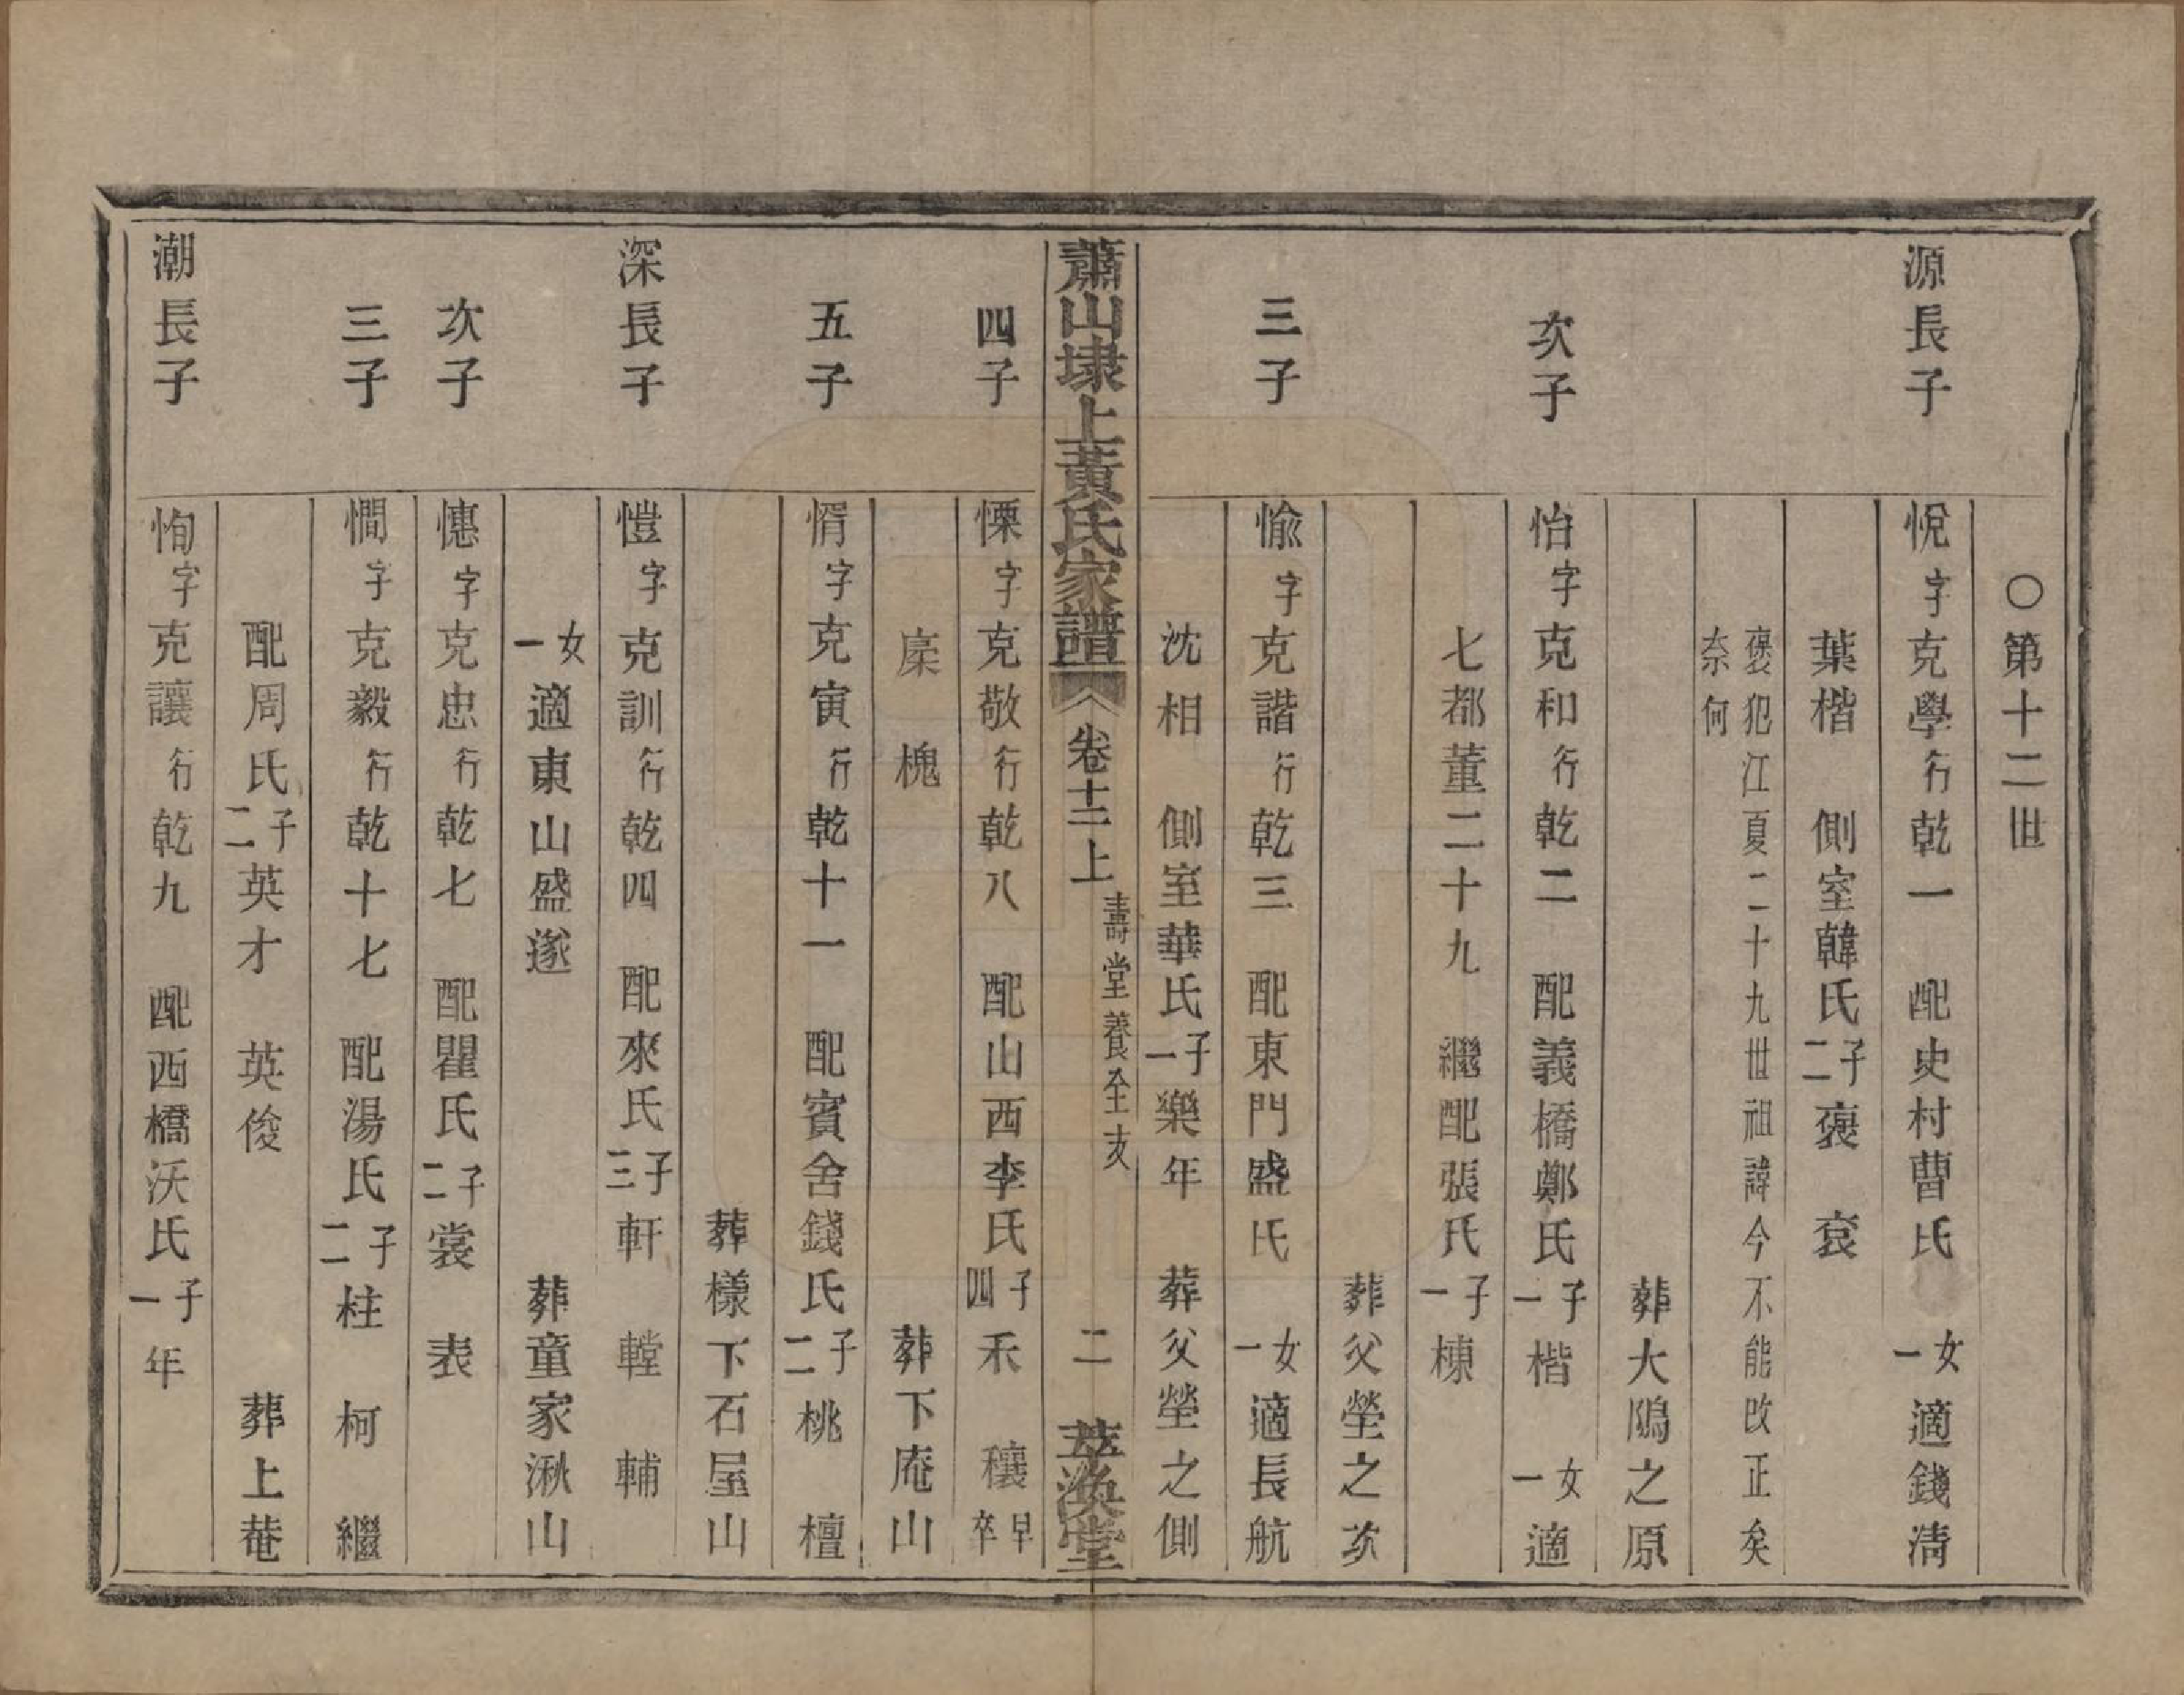 ○第十二世
源長子 悅字克學行乾一 配史村曹氏 女一適錢清
葉楷 側室韓氏子二褒 袞
褒犯江夏二十九世祖諱今不能改正矣
奈何
葬大隝之原
次子 怡字克和行乾二 配義橋鄭氏子一楷 女一適
七都董二十九 繼配張氏子一棟
葬父塋之次
三子 愉字克諧行乾三 配東門盛氏 女一適長航
沈相 側室華氏子一樂年 葬父塋之側
蕭山埭上黃氏家譜 卷十二上 壽堂養全支 二 萃渙堂
四子 慄字克敬行乾八 配山西李氏子四禾 穰早卒
槺 槐 葬下庵山
五子 惰字克寅行乾十一 配賓舍錢氏子二桃 檀
葬樣下石屋山
深長子 愷字克訓行乾四 配來氏子三軒 䡝 輔
女一適東山盛遂 葬童家湫山
次子 憓字克忠行乾七 配瞿氏子二裳 表
三子 憪字克毅行乾十七 配湯氏子二柱 柯 繼
配周氏子二英才 英俊 葬上菴
潮長子 恂字克讓行乾九 配西橋沃氏子一年